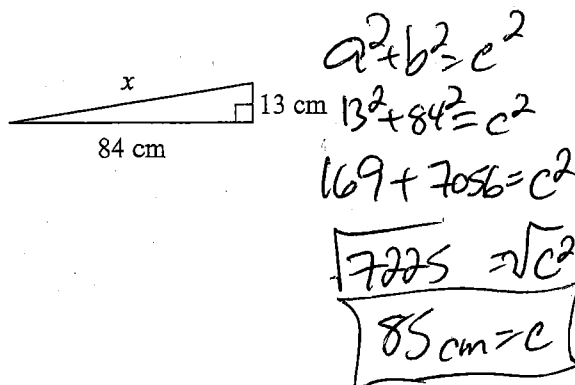 x
13 cm
84 cm
a²+b²=c²
13²+84²=c²
169+7056=c²
√7225 =√c²
85cm=c